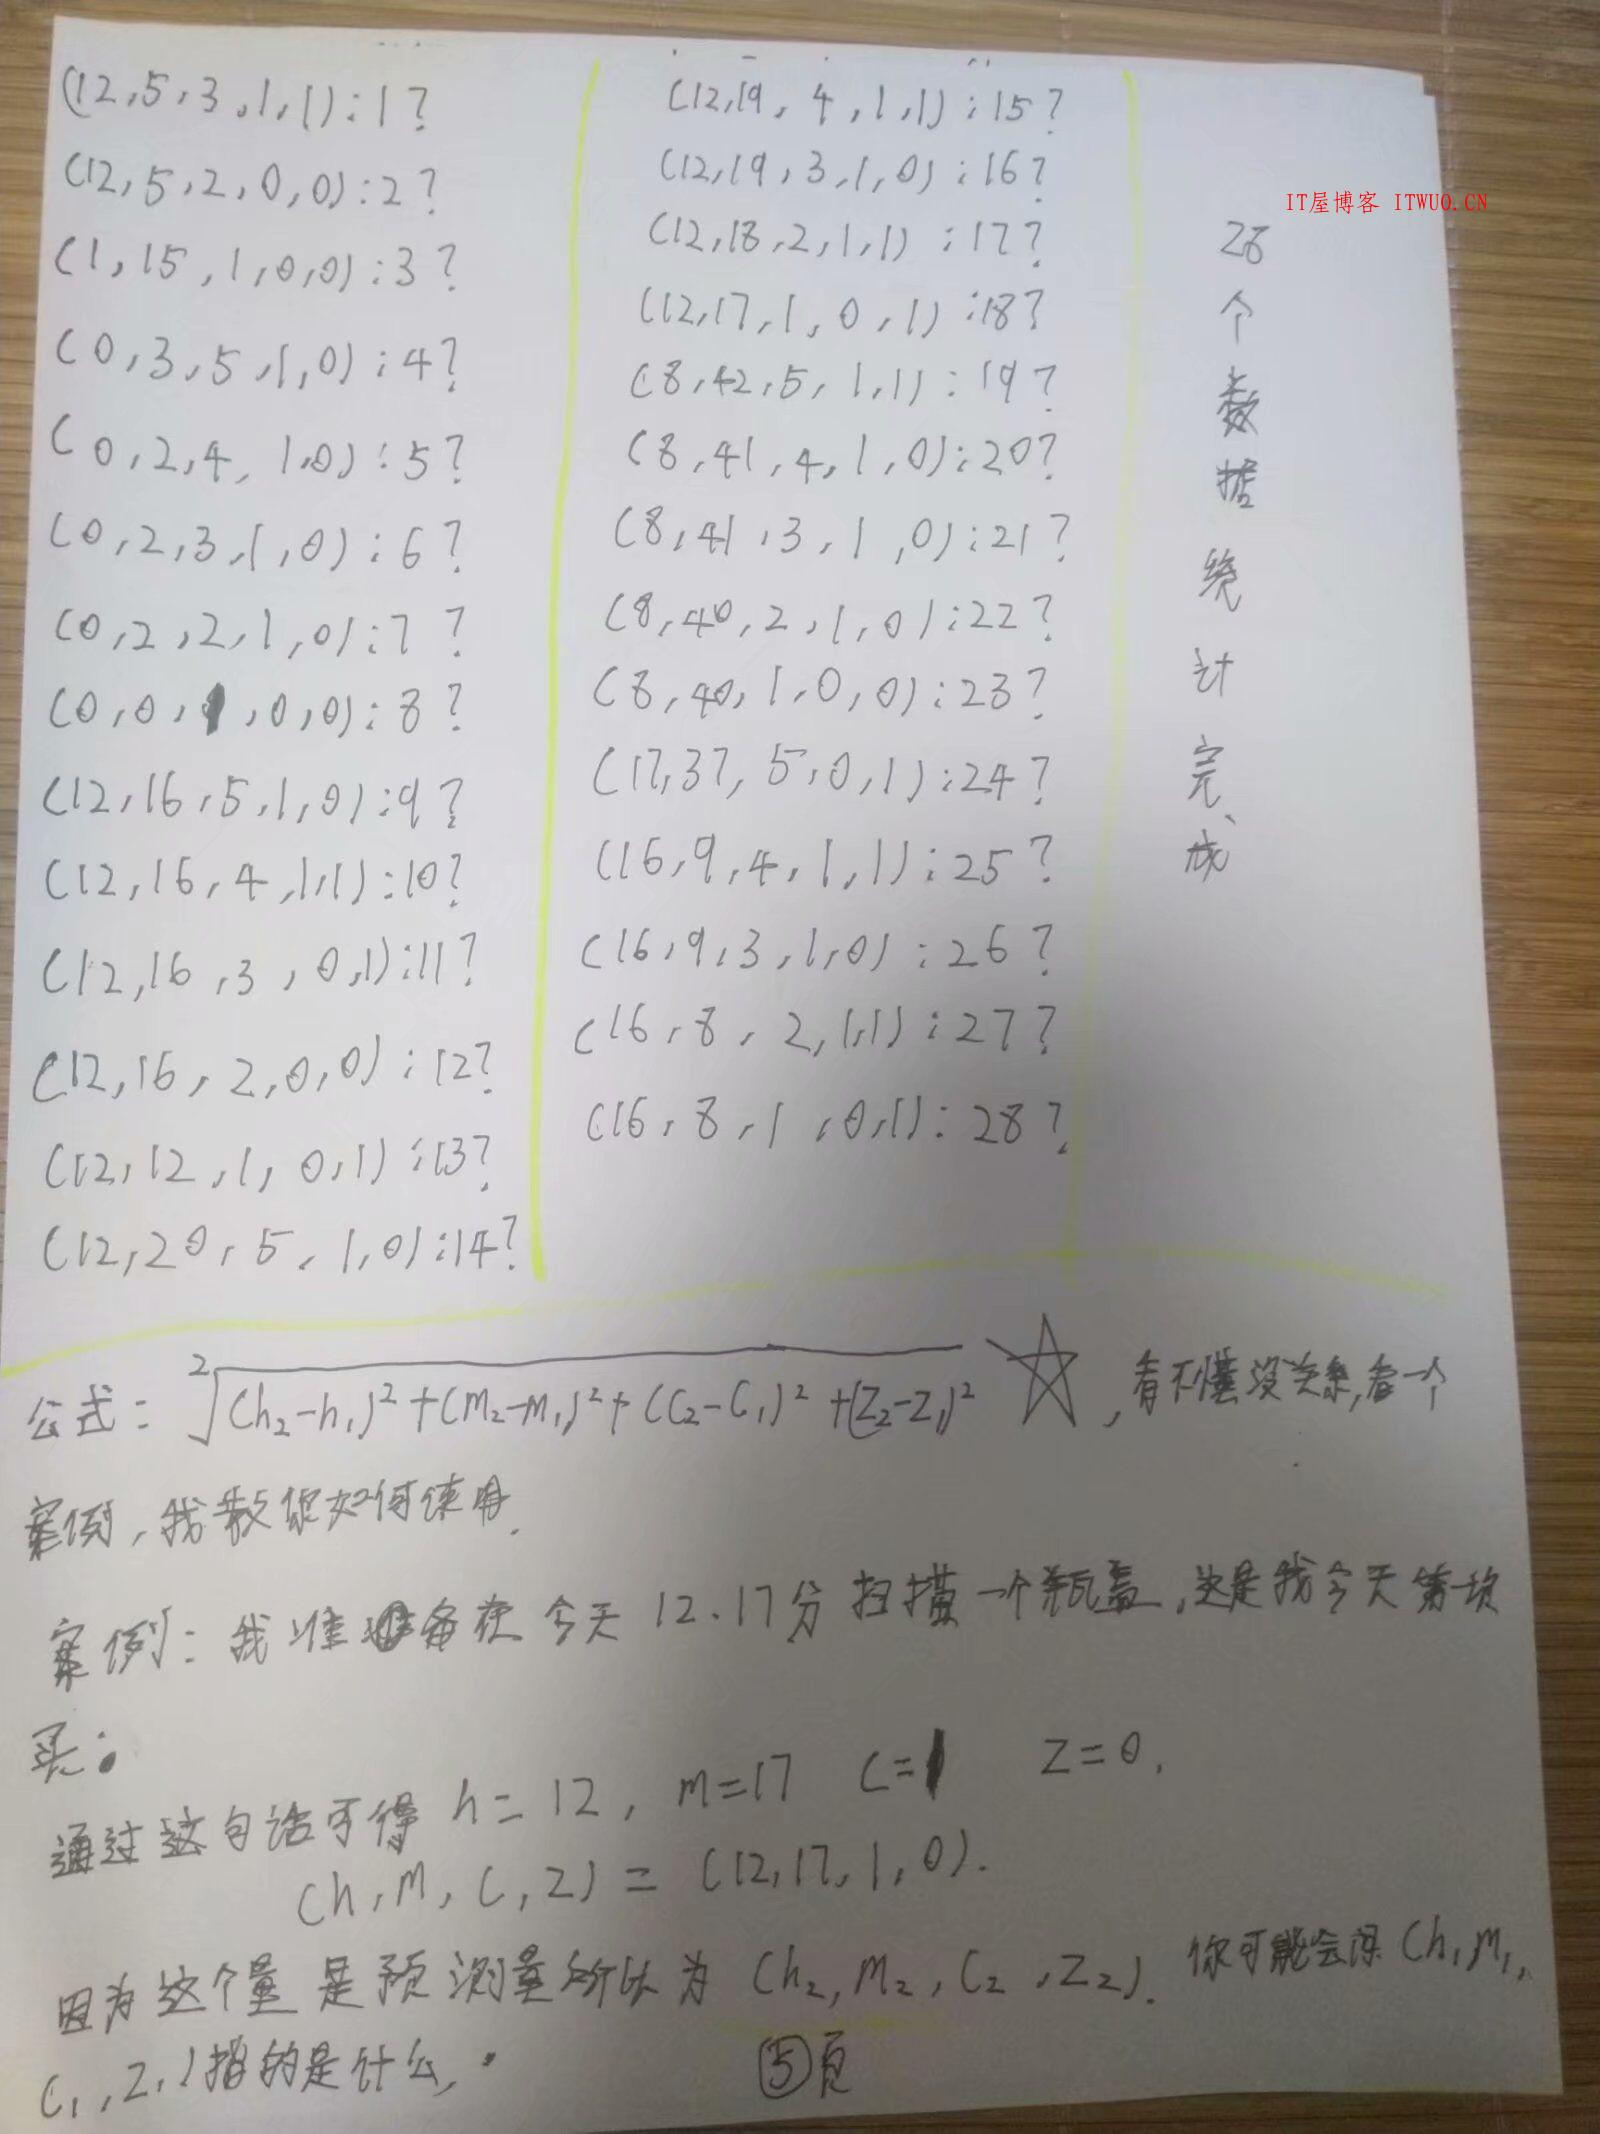 (12,5,3,1,1):1?
(12,5,2,0,0):2?
(1,15,1,0,0):3?
(0,3,5,1,0):4?
(0,2,4,1,0):5?
(0,2,3,1,0):6?
(0,2,2,1,0):7?
(0,0,1,0,0):8?
(12,16,5,1,0):9?
(12,16,4,1,1):10?
(12,16,3,0,1):11?
(12,16,2,0,0):12?
(12,12,1,0,1):13?
(12,20,5,1,0):14?
(12,19,4,1,1):15?
(12,19,3,1,0):16?
(12,18,2,1,1):17?
(12,17,1,0,1):18?
(8,42,5,1,1):19?
(8,41,4,1,0):20?
(8,41,3,1,0):21?
(8,40,2,1,0):22?
(8,40,1,0,0):23?
(17,37,5,0,1):24?
(16,9,4,1,1):25?
(16,9,3,1,0):26?
(16,8,2,1,1):27?
(16,8,1,0,1):28?
IT屋博客 ITWUO.CN
28个数据统计完成
公式: ²√(h₂-h₁)²+(m₂-m₁)²+(C₂-C₁)²+(Z₂-Z₁)² ☆,看不懂没关系,看一个
案例,我教你如何使用.
案例:我准备在今天12.17分扫描一个瓶盖,这是我今天第一次
买.
通过这句话可得 h=12, m=17 C=1 Z=0.
(h,m,C,Z)=(12,17,1,0).
因为这个量是预测量所以为(h₂,m₂,C₂,Z₂). 你可能会问(h₁m₁,
C₁,Z₁)指的是什么.
⑤页